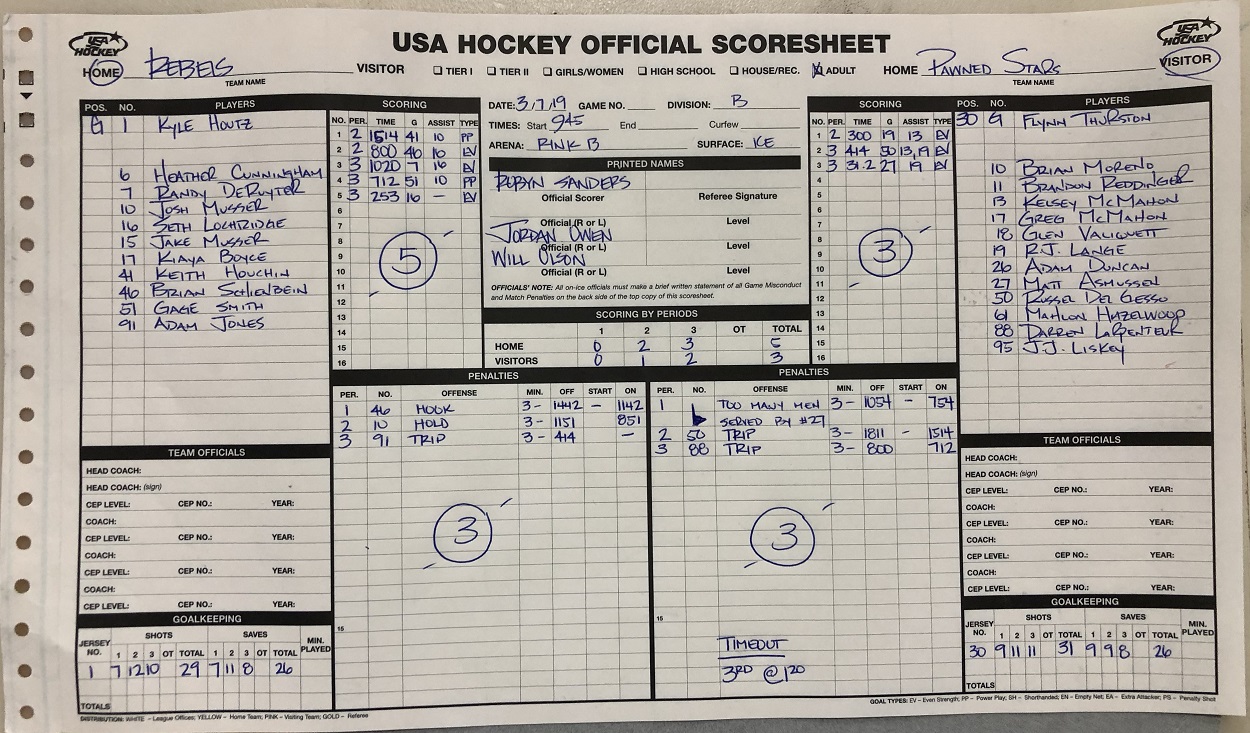 USA HOCKEY
USA HOCKEY OFFICIAL SCORESHEET
USA HOCKEY
HOME REBELS VISITOR TIER I TIER II GIRLS/WOMEN HIGH SCHOOL HOUSE/REC. ADULT HOME PAWNED STARS VISITOR
TEAM NAME TEAM NAME
POS. NO. PLAYERS
G 1 KYLE HOUTZ
6 HEATHER CUNNINGHAM
7 RANDY DERUYTER
10 JOSH MUSSER
16 SETH LOCHRIDGE
15 JAKE MUSSER
17 KIAYA BOYCE
41 KEITH HOUCHIN
46 BRIAN SCHIENBEIN
51 GAGE SMITH
91 ADAM JONES
SCORING
NO. PER. TIME G ASSIST TYPE
1 2 1514 41 10 PP
2 2 800 46 16 EV
3 3 1020 7 16 EV
4 3 712 51 10 PP
5 3 253 16 - EV
6
7
8
9
10
11
12
13
14
15
16
5
DATE: 3/7/19 GAME NO. DIVISION: B
TIMES: Start 945 End Curfew
ARENA: RINK B SURFACE: ICE
PRINTED NAMES
ROBYN SANDERS
Official Scorer Referee Signature
Official (R or L) Level
JORDAN OWEN
Official (R or L) Level
WILL OLSON
Official (R or L) Level
OFFICIALS' NOTE: All on-ice officials must make a brief written statement of all Game Misconduct
and Match Penalties on the back side of the top copy of this scoresheet.
SCORING BY PERIODS
1 2 3 OT TOTAL
HOME 0 2 3 5
VISITORS 0 1 2 3
SCORING
NO. PER. TIME G ASSIST TYPE
1 2 300 19 13 EV
2 3 414 50 13,19 EV
3 3 31.2 27 19 EV
4
5
6
7
8
9
10
11
12
13
14
15
16
3
POS. NO. PLAYERS
30 G FLYNN THURSTON
10 BRIAN MORENO
11 BRANDON REDDINGER
13 KELSEY MCMAHON
17 GREG MCMAHON
18 GLEN VALIQUETT
19 R.J. LANGE
26 ADAM DUNCAN
27 MATT ASMUSSEN
50 RUSSEL DEL GESSO
61 MAHLON HAZELWOOD
88 DARREN LARPENTEUR
95 J.J. LISKEY
PENALTIES
PER. NO. OFFENSE MIN. OFF START ON
1 46 HOOK 3- 1442 - 1142
2 10 HOLD 3- 1151 851
3 91 TRIP 3- 414 -
3
15
PENALTIES
PER. NO. OFFENSE MIN. OFF START ON
1 TOO MANY MEN 3- 1054 - 754
SERVED BY #27
2 50 TRIP 3- 1811 - 1514
3 88 TRIP 3- 800 712
3
15
TIMEOUT
3RD @ 120
TEAM OFFICIALS
HEAD COACH:
HEAD COACH: (sign)
CEP LEVEL: CEP NO.: YEAR:
COACH:
CEP LEVEL: CEP NO.: YEAR:
COACH:
CEP LEVEL: CEP NO.: YEAR:
COACH:
CEP LEVEL: CEP NO.: YEAR:
GOALKEEPING
JERSEY NO. SHOTS SAVES MIN. PLAYED
1 2 3 OT TOTAL 1 2 3 OT TOTAL
1 7 12 10 29 7 11 8 26
TOTALS
TEAM OFFICIALS
HEAD COACH:
HEAD COACH: (sign)
CEP LEVEL: CEP NO.: YEAR:
COACH:
CEP LEVEL: CEP NO.: YEAR:
COACH:
CEP LEVEL: CEP NO.: YEAR:
COACH:
CEP LEVEL: CEP NO.: YEAR:
GOALKEEPING
JERSEY NO. SHOTS SAVES MIN. PLAYED
1 2 3 OT TOTAL 1 2 3 OT TOTAL
30 9 11 11 31 9 9 8 26
TOTALS
DISTRIBUTION: WHITE – League Offices; YELLOW – Home Team; PINK – Visiting Team; GOLD – Referee
GOAL TYPES: EV – Even Strength; PP – Power Play; SH – Shorthanded; EN – Empty Net; EA – Extra Attacker; PS – Penalty Shot